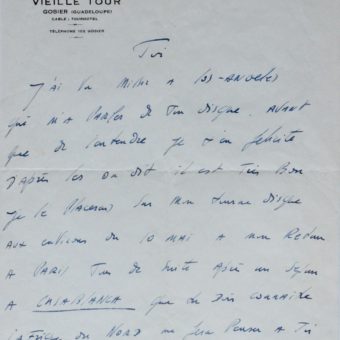 VIEILLE TOUR
GOSIER (GUADELOUPE)
CABLE: TOURHOTEL
TÉLÉPHONE 192 GOSIER
Toi
J'ai vu à LOS-ANGELES
qui m'a parlé de ton disque. Avant
que de l'entendre je t'en félicite
D'après les on dit il est très bon
Je le placerai sur mon tourne disque
aux environs du 10 MAI à mon retour
à PARIS tout de suite après un séjour
à CASABLANCA que tu dois connaître
du NORD me fera penser à toi